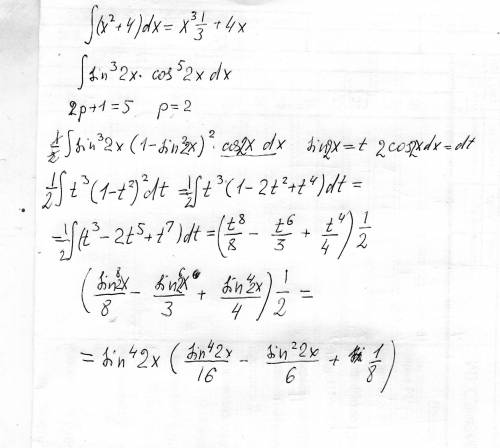 ∫(x²+4)dx = x³ 1/3 + 4x
∫sin³2x · cos⁵2x dx
2p+1=5   p=2
1/2 ∫sin³2x (1-sin²2x)² · cos2x dx   sin2x=t   2cos2xdx=dt
1/2 ∫t³(1-t²)²dt = 1/2 ∫t³(1-2t²+t⁴)dt =
= 1/2 ∫(t³-2t⁵+t⁷)dt = (t⁸/8 - t⁶/3 + t⁴/4) 1/2
(sin⁸2x/8 - sin⁶2x/3 + sin⁴2x/4) 1/2 =
= sin⁴2x (sin⁴2x/16 - sin²2x/6 + 1/8)